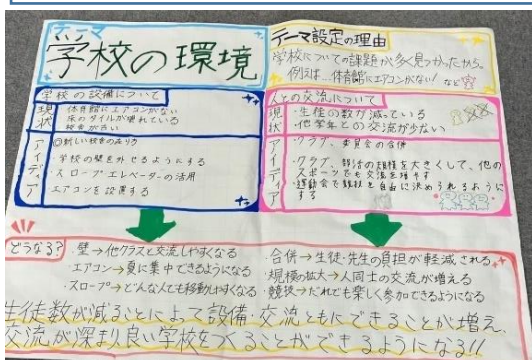 テーマ
学校の環境
テーマ設定の理由
学校についての課題が多く見つかったから。
例えば…体育館にエアコンがない! など
学校の設備について
現状
体育館にエアコンがない
床のタイルが壊れている
校舎が古い
アイディア
◎新しい校舎の在り方
学校の壁を外せるようにする
スロープ エレベーターの活用
エアコンを設置する
人との交流について
現状
・生徒の数が減っている
・他学年との交流が少ない
アイディア
・クラブ、委員会の合併
・クラブ、部活の規模を大きくして、他の
スポーツでも交流を増やす
・運動会で競技を自由に決められるように
する
どうなる?
・壁→他クラスと交流しやすくなる
・エアコン→夏に集中できるようになる
・スロープ→どんな人でも移動しやすくなる
・合併→生徒・先生の負担が軽減される
・規模の拡大→人同士の交流が増える
・競技→だれでも楽しく参加できるようになる
生徒数が減ることによって設備・交流ともにできることが増え、
交流が深まり良い学校をつくることができるようになる!!